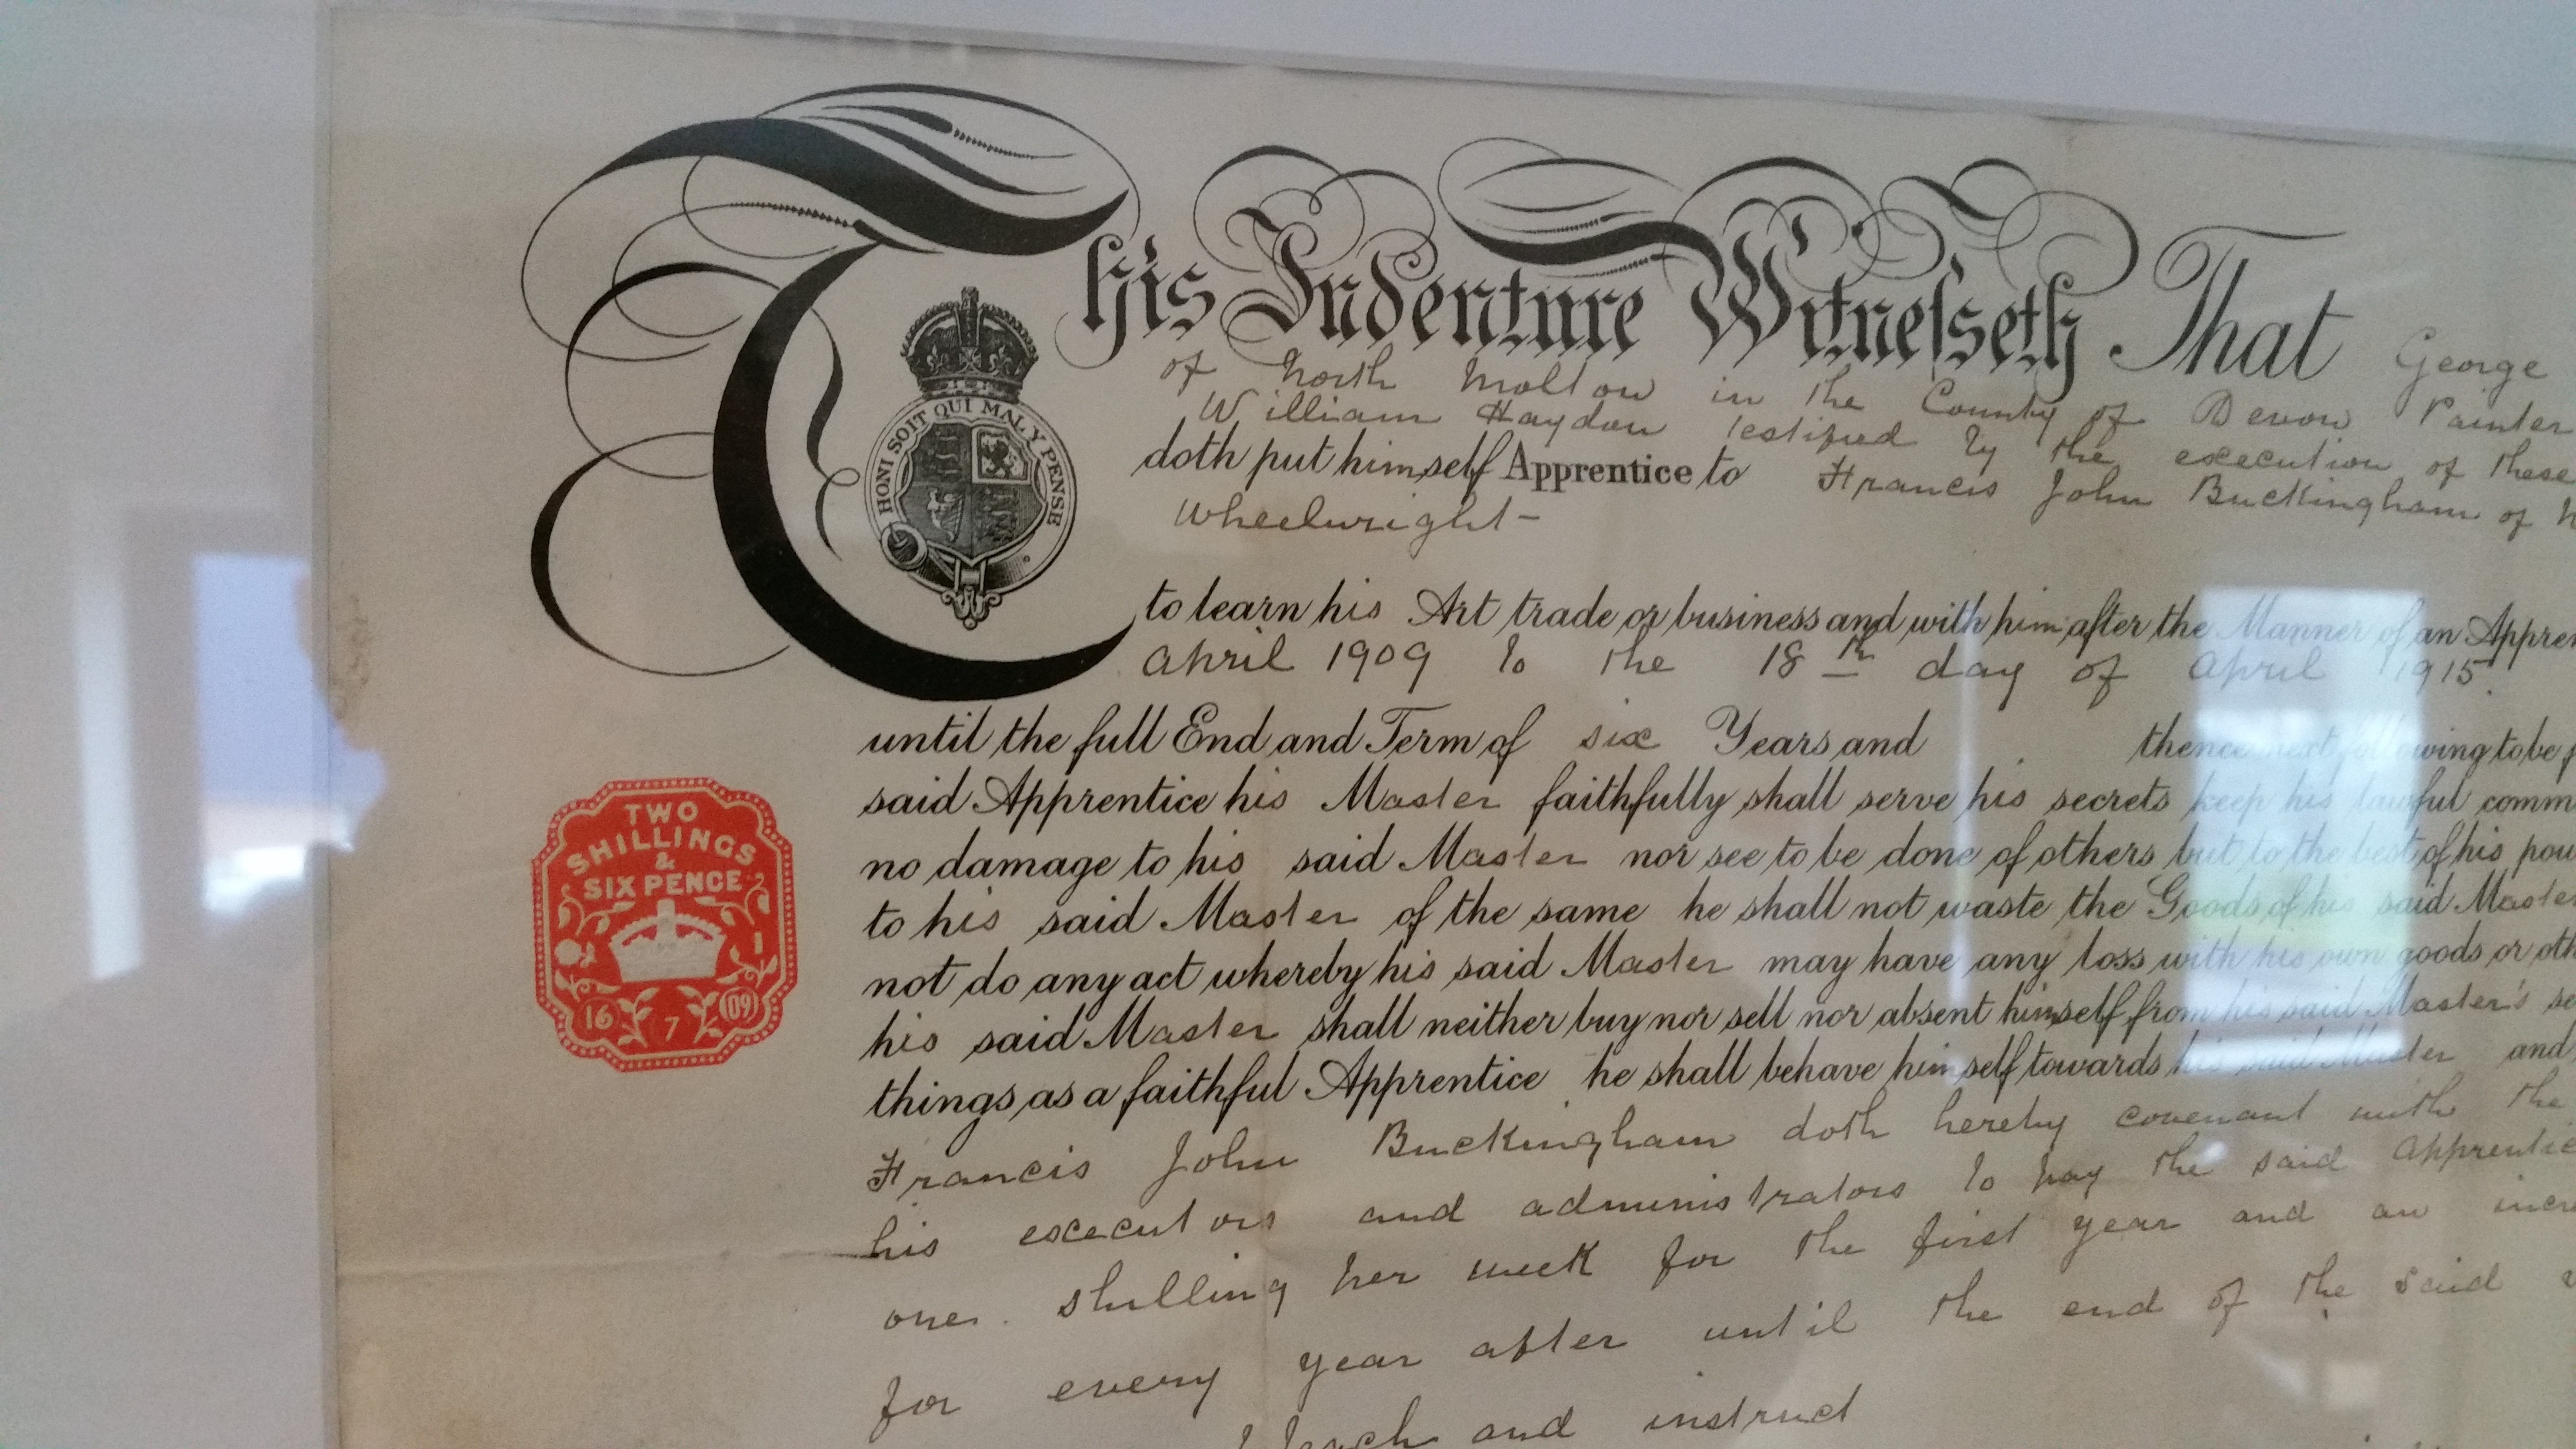 This Indenture Witnesseth That George
of North Molton in the County of Devon Painter
William Haydon testified by the execution of these
doth put himself Apprentice to Francis John Buckingham of
Wheelwright-
HONI SOIT QUI MAL Y PENSE
to learn his Art trade or business and with him after the Manner of an Appren
April 1909 to the 18th day of April 1915.
until the full End and Term of six Years and thence next following to be
said Apprentice his Master faithfully shall serve his secrets keep his lawful comm
no damage to his said Master nor see to be done of others but to the best of his pow
to his said Master of the same he shall not waste the Goods of his said Master
not do any act whereby his said Master may have any loss with his own goods or oth
his said Master shall neither buy nor sell nor absent himself from his said Master's se
things as a faithful Apprentice he shall behave himself towards his said Master and
Francis John Buckingham doth hereby covenant with the
his executors and administrators to pay the said Apprentice
one shilling per week for the first year and an incre
for every year after until the end of the said
teach and instruct
TWO
SHILLINGS
&
SIX PENCE
16 7 09